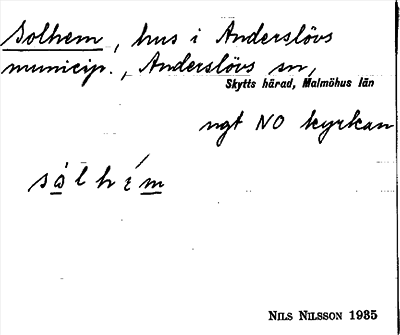 Solhem, hus i Anderslövs
municip., Anderslövs sn,
Skytts härad, Malmöhus län
ngt NO kyrkan
NILS NILSSON 1935